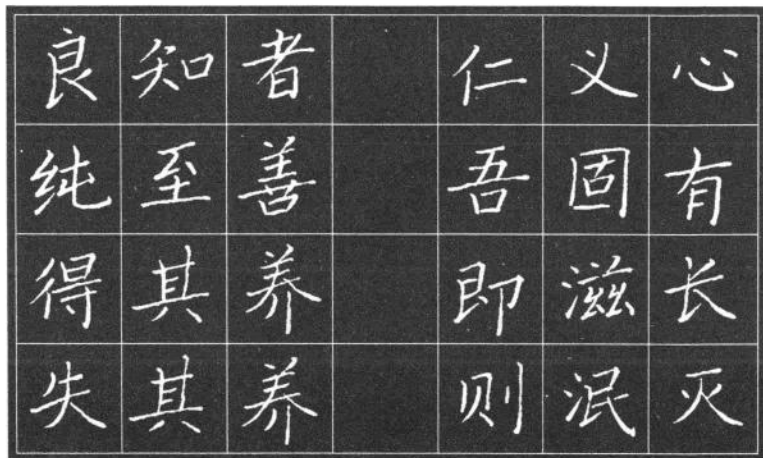 良知者 仁义心
纯至善 吾固有
得其养 即滋长
失其养 则泯灭